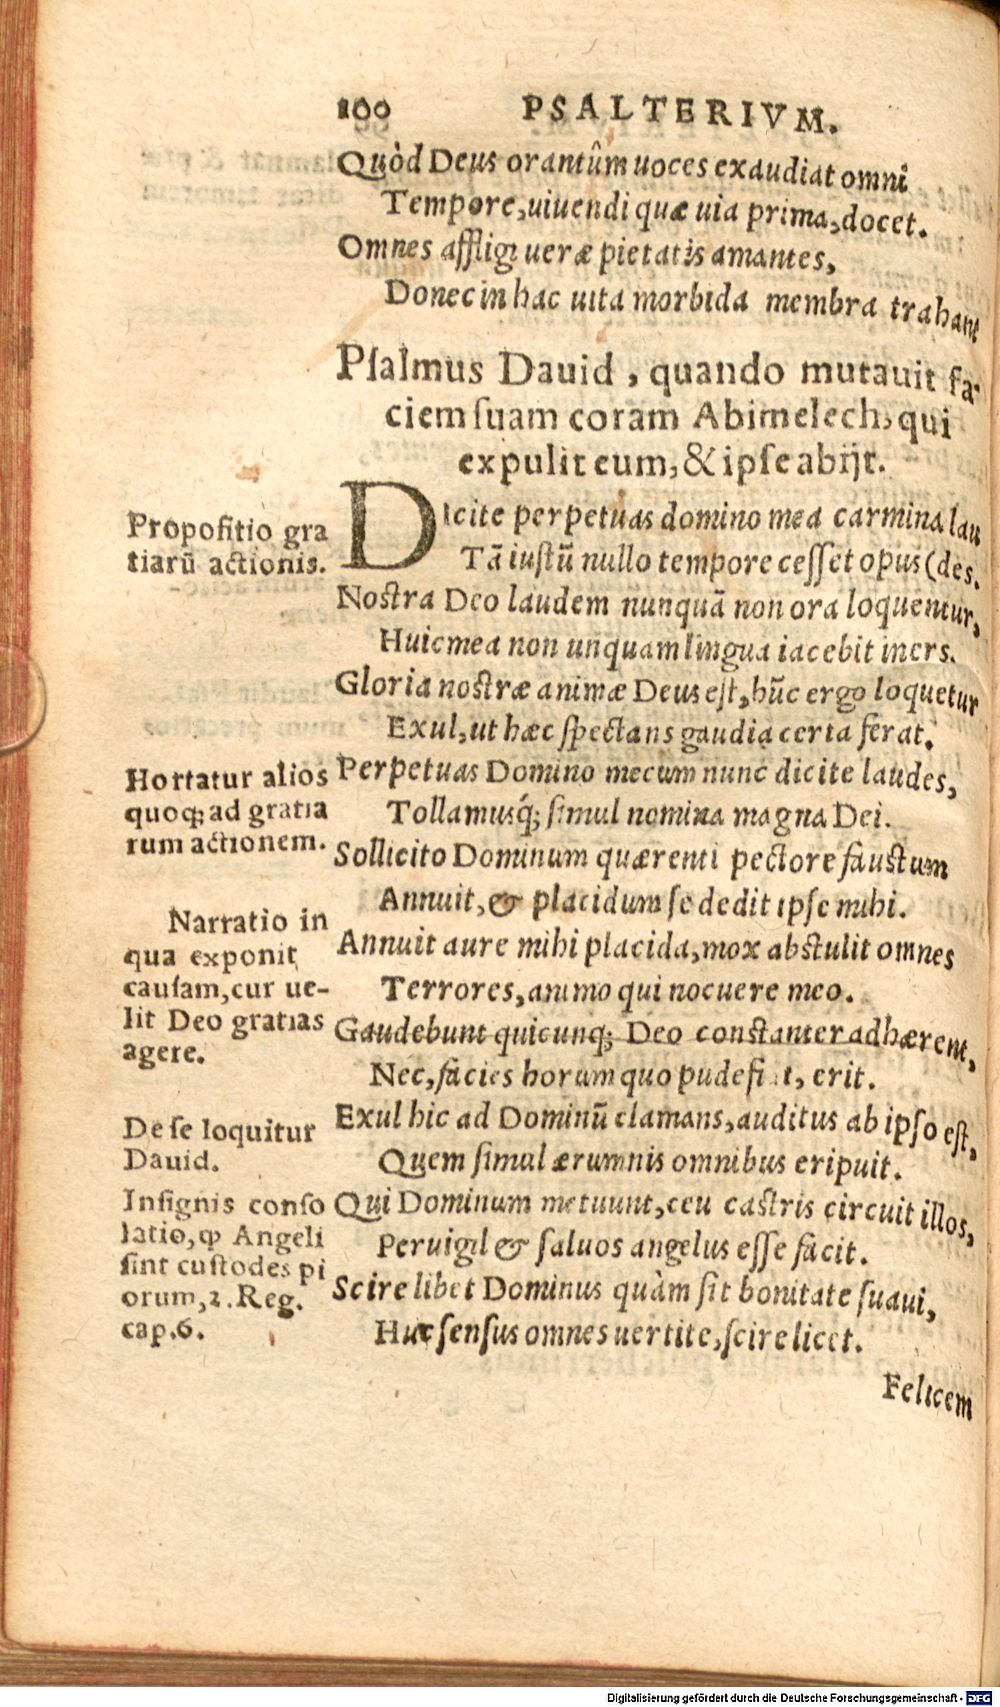 100 PSALTERIVM.
Quòd Deus orantûm uoces exaudiat omni
Tempore, uiuendi quæ uia prima, docet.
Omnes affligi ueræ pietatis amantes,
Donec in hac uita morbida membra trahant
Psalmus Dauid, quando mutauit fa-
ciem suam coram Abimelech, qui
expulit eum, & ipse abijt.
Propositio gra
tiarũ actionis.
DIcite perpetuas domino mea carmina lau
Tã iustũ nullo tempore cesset opus (des.
Nostra Deo laudem nunquã non ora loquentur,
Huic mea non unquam lingua iacebit iners.
Gloria nostræ animæ Deus est, hũc ergo loquetur
Exul, ut hæc spectans gaudia certa ferat.
Hortatur alios
quoq; ad gratia
rum actionem.
Perpetuas Domino mecum nunc dicite laudes,
Tollamusq́; simul nomina magna Dei.
Sollicito Dominum quærenti pectore faustum
Annuit, & placidum se dedit ipse mihi.
Narratio in
qua exponit
causam, cur ue-
lit Deo gratias
agere.
Annuit aure mihi placida, mox abstulit omnes
Terrores, animo qui nocuere meo.
Gaudebunt quicunq; Deo constanter adhærent,
Nec, facies horum quo pudefi t, erit.
De se loquitur
Dauid.
Exul hic ad Dominũ clamans, auditus ab ipso est,
Quem simul ærumnis omnibus eripuit.
Insignis conso
latio, ꝙ Angeli
sint custodes pi
orum, 2. Reg.
cap. 6.
Qui Dominum metuunt, ceu castris circuit illos,
Peruigil & saluos angelus esse facit.
Scire libet Dominus quàm sit bonitate suaui,
Huc sensus omnes uertite, scire licet.
Felicem
Digitalisierung gefördert durch die Deutsche Forschungsgemeinschaft - DFG